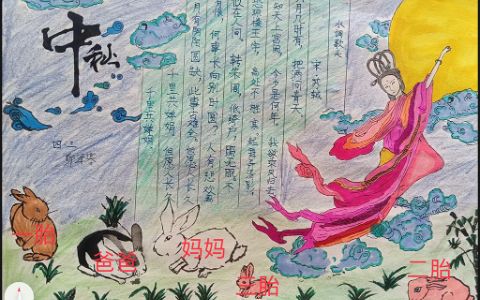 中秋
水调歌头
宋·苏轼
月几时有，把酒问青天
知天上宫阙，今夕是何年。我欲乘风归去
琼楼玉宇，高处不胜寒，起舞弄清影，
何似在人间。转朱阁，低绮户，照无眠。不
有恨，何事长向别时圆？人有悲欢离
月有阴晴圆缺，此事古难全。但愿人长久
千里共婵娟。但愿人长久
千里共婵娟。
爸爸
妈妈
三胎
二胎